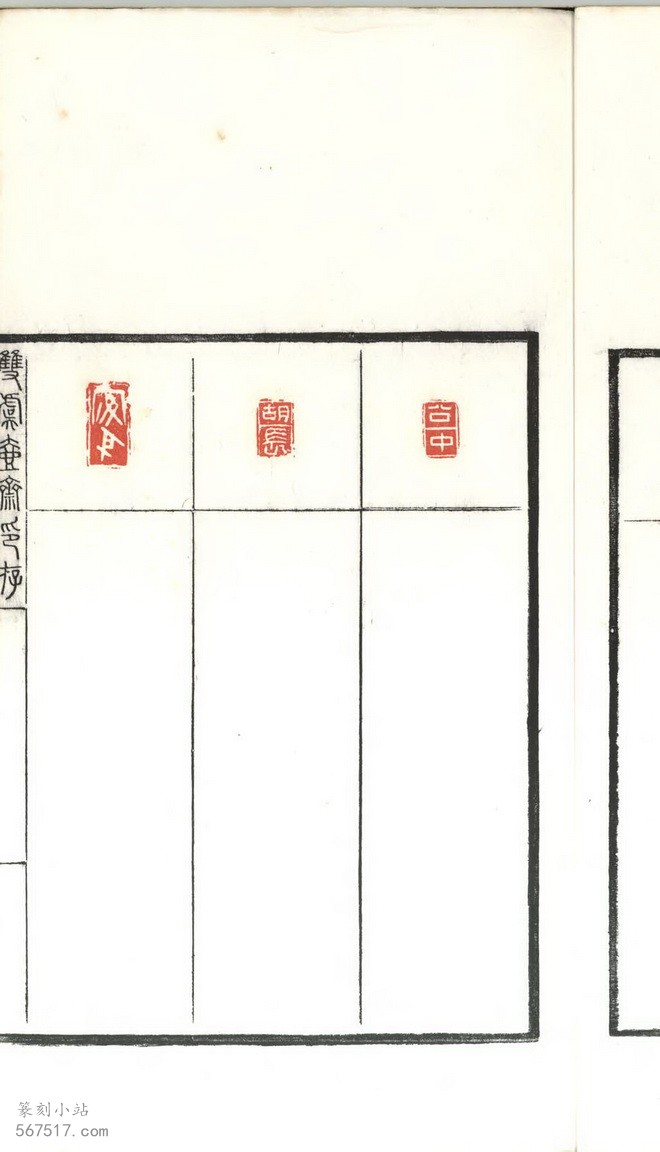 公中
胡長
雙虞壺齋印存
篆刻小站
567517.com